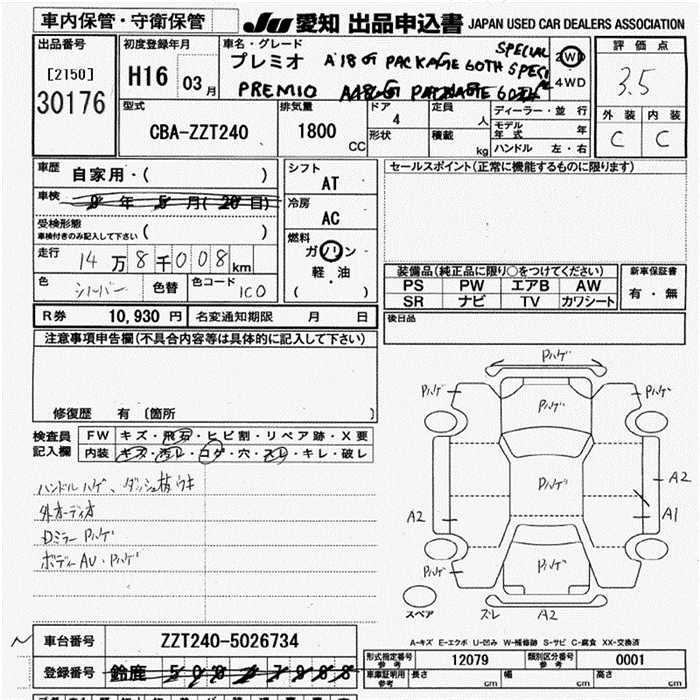 車内保管・守衛保管
JU 愛知 出品申込書 JAPAN USED CAR DEALERS ASSOCIATION
出品番号
[2150]
30176
初度登録年月
H16 03月
車名・グレード
プレミオ A18 G PACKAGE 60TH SPECIAL
PREMIO
2WD
4WD
評価点
3.5
外装 内装
C C
型式
CBA-ZZT240
排気量
1800 CC
ドア
4
形状
定員
人
積載
kg
ディーラー・並行
モデル年式 年
ハンドル 左・右
車歴
自家用・( )
車検
年 月( 日)
受検形態
車検付きのみ記入して下さい ( )
走行
14万8千008km
色
シルバー
色替
色コード
1C0
シフト
AT
冷房
AC
燃料
ガソリン
軽・油
( )
セールスポイント(正常に機能するものに限ります)
装備品(純正品に限り○をつけてください)
PS PW エアB AW
SR ナビ TV カワシート
新車保証書
有・無
後日品
R券 10,930円 名変通知期限 月 日
注意事項申告欄(不具合内容等は具体的に記入して下さい)
修復歴 有 〔箇所 〕
検査員記入欄
FW キズ・飛石・ヒビ割・リペア跡・X要
内装 キズ・汚レ・コゲ・穴・スレ・キレ・破レ
ハンドルハゲ、ダッシュ板ウキ
外オーディオ
Dミラー Pハゲ
ボディーAU・Pハゲ
Pハゲ
Pハゲ
Pハゲ
Pハゲ
Pハゲ
A2
A2
A1
Pハゲ
Pハゲ
スペア
ズレ
A2
A-キズ E-エクボ U-凹み W-補修跡 S-サビ C-腐食 XX-交換済
車台番号 ZZT240-5026734
登録番号 鈴鹿
形式指定番号 参考 12079 類別区分番号 参考 0001
車庫証明用 参考 長さ cm 幅 cm 高さ cm